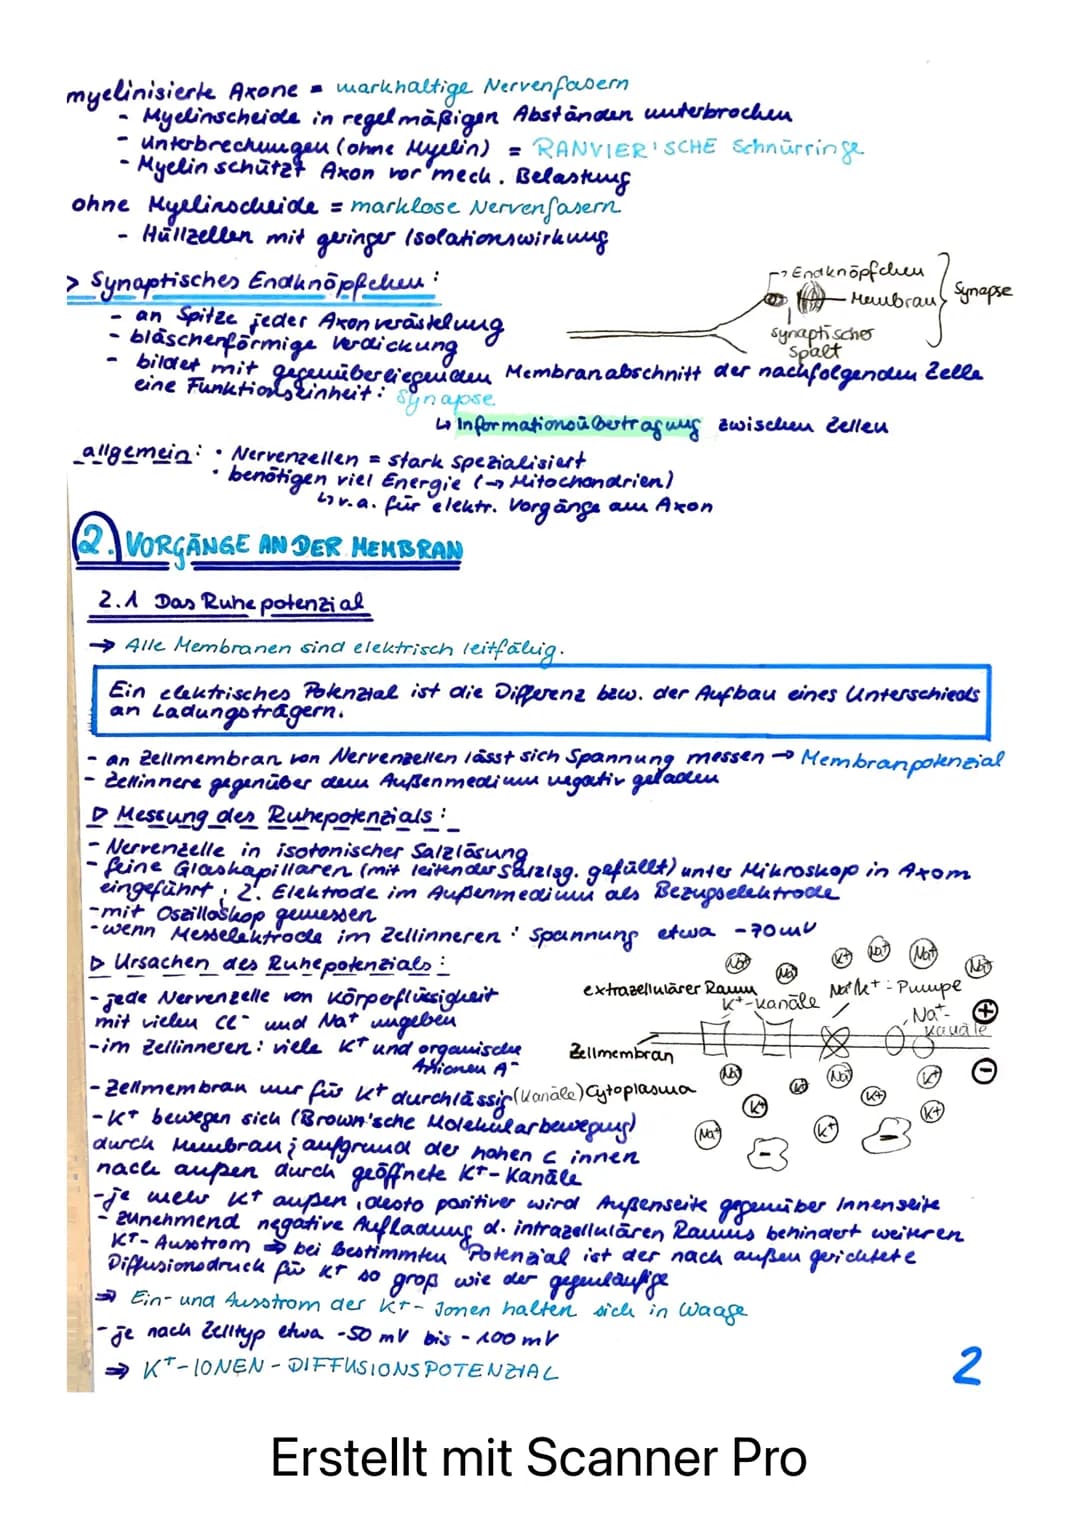 myelinisierte Axone = markhaltige Nervenfasern
- Myelinscheide in regelmäßigen Abständen unterbrochen
- Unterbrechungen (ohne Myelin) = RANVIER'SCHE Schnürringe
- Myelin schützt Axon vor mech. Belastung
ohne Myelinscheide = marklose Nervenfasern
- Hüllzellen mit geringer Isolationswirkung
> Synaptisches Endknöpfchen:
- an Spitze jeder Axonverästelung
- bläschenförmige Verdickung
- bildet mit gegenüberliegenden Membranabschnitt der nachfolgenden Zelle
eine Funktionseinheit: Synapse
↳ Informationsübertragung zwischen Zellen
→ Endknöpfchen
Membran
Synapse
synaptischer
Spalt
allgemein: • Nervenzellen = stark spezialisiert
• benötigen viel Energie (→ Mitochondrien)
↳ v.a. für elektr. Vorgänge am Axon
2. VORGÄNGE AN DER MEMBRAN
2.1 Das Ruhepotenzial
→ Alle Membranen sind elektrisch leitfähig.
Ein elektrisches Potenzial ist die Differenz bzw. der Aufbau eines Unterschieds
an Ladungsträgern.
- an Zellmembran von Nervenzellen lässt sich Spannung messen → Membranpotenzial
- Zellinnere gegenüber dem Außenmedium negativ geladen
▷ Messung des Ruhepotenzials:
- Nervenzelle in isotonischer Salzlösung
- feine Glaskapillaren (mit leitender Salzlsg. gefüllt) unter Mikroskop in Axom
eingeführt, 2. Elektrode im Außenmedium als Bezugselektrode
- mit Oszilloskop gemessen
- wenn Messelektrode im Zellinneren: Spannung etwa -70mV
▷ Ursachen des Ruhepotenzials:
- jede Nervenzelle von Körperflüssigkeit
mit vielen Cl⁻ und Na⁺ umgeben
- im Zellinneren: viele K⁺ und organische
Anionen A⁻
- Zellmembran nur für K⁺ durchlässig (Kanäle)
- K⁺ bewegen sich (Brown'sche Molekularbewegung)
durch Membran; aufgrund der hohen c innen
nach außen durch geöffnete K⁺-Kanäle
Na⁺ Na⁺ K⁺ Na⁺ Na⁺ Na⁺
extrazellulärer Raum
K⁺-Kanäle
Na⁺/K⁺-Pumpe
Na⁺-
Kanäle
+
Zellmembran
−
Cytoplasma
Na⁺ K⁺ Na⁺ K⁺ K⁺
K⁺ K⁺
Na⁺ K⁺
− −
- je mehr K⁺ außen, desto positiver wird Außenseite gegenüber Innenseite
- zunehmend negative Aufladung d. intrazellulären Raums behindert weiteren
K⁺-Ausstrom ⇒ bei bestimmten Potenzial ist der nach außen gerichtete
Diffusionsdruck für K⁺ so groß wie der gegenläufige
⇒ Ein- und Ausstrom der K⁺-Ionen halten sich in Waage
- je nach Zelltyp etwa -50 mV bis -100 mV
⇒ K⁺-IONEN-DIFFUSIONSPOTENZIAL
2
Erstellt mit Scanner Pro